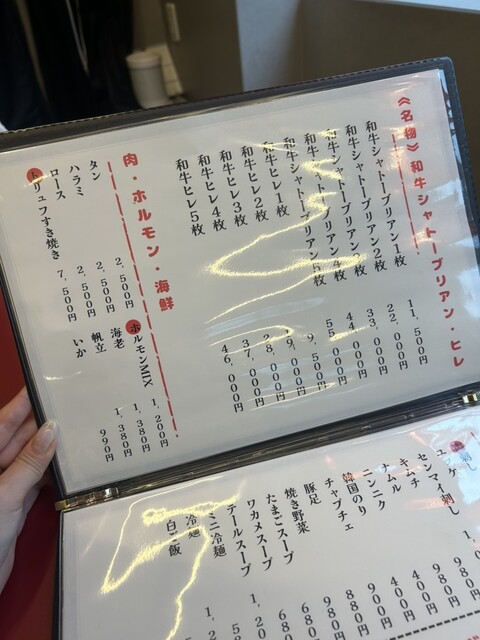 《名物》和牛シャトーブリアン・ヒレ
和牛シャトーブリアン1枚 11,500円
和牛シャトーブリアン2枚 22,000円
和牛シャトーブリアン3枚 33,000円
和牛シャトーブリアン4枚 44,000円
和牛シャトーブリアン5枚 55,000円
和牛ヒレ1枚 9,500円
和牛ヒレ2枚 19,000円
和牛ヒレ3枚 28,000円
和牛ヒレ4枚 37,000円
和牛ヒレ5枚 46,000円
肉・ホルモン・海鮮
タン 2,500円
ハラミ 2,500円
ロース 2,500円
トリュフすき焼き 7,500円
ホルモンMIX 1,200円
海老 1,380円
帆立 1,380円
いか 990円
刺し
ユッケ
センマイ刺し
キムチ
ナムル
ニンニク
韓国のり
チャプチェ
豚足
焼き野菜
たまごスープ
ワカメスープ
テールスープ
ミニ冷麺
冷麺
白ご飯